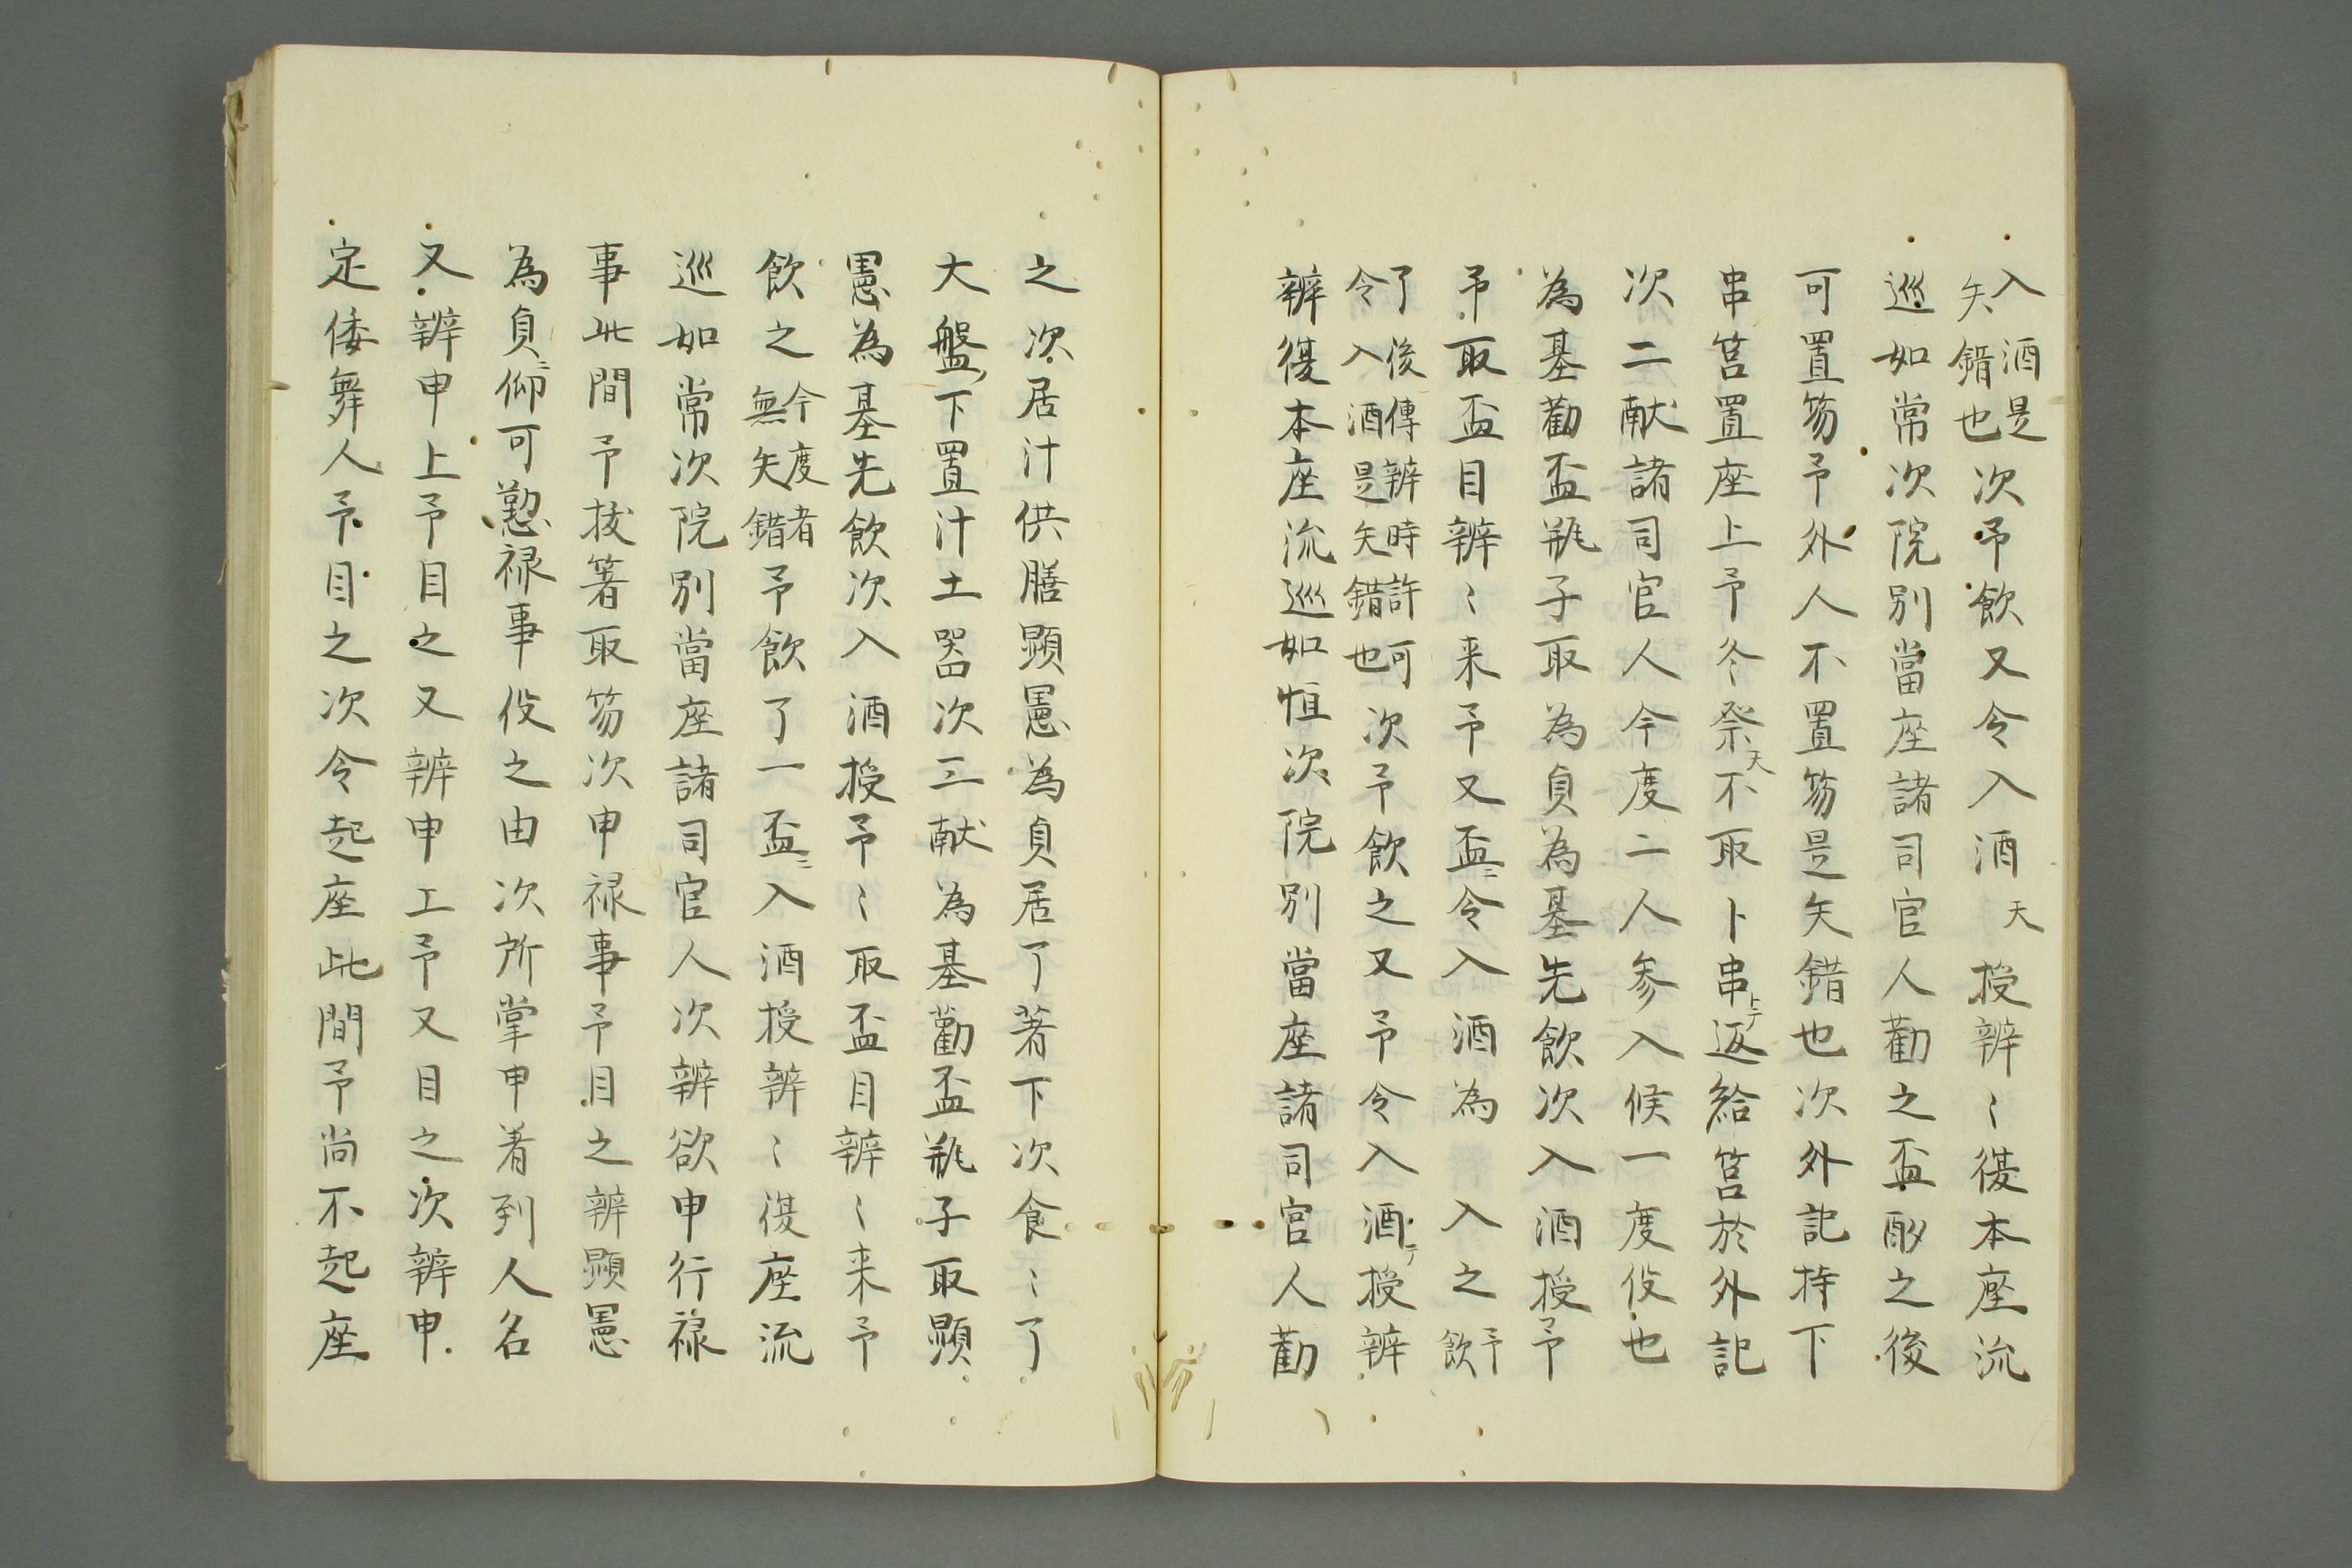 入酒是矢錯也次予飲又令入酒天授辨〻復本座流
巡如常次院別當座諸司官人勸之盃酌之後
可置笏予外人不置笏是矢錯也次外記持下
串筥置座上予冬祭天不取卜串上テ返給筥於外記
次二献諸司官人今度二人参入候一度役也
為基勸盃瓶子取為貞為基先飲次入酒授予
予取盃目辨〻来予又盃ニ令入酒為入之予飲
了後傳辨時許可令入酒是矢錯也次予飲之又予令入酒テ授辨
辨復本座流巡如恒次院別當座諸司官人勸
之次居汁供膳顕憲為貞居了著下次食〻了
大盤下置汁土器次三献為基勸盃瓶子取顕
憲為基先飲次入酒授予〻取盃目辨〻来予
飲之今度者無矢錯予飲了一盃ニ入酒授辨〻復座流
巡如常次院別當座諸司官人次辨欲申行禄
事此間予抜箸取笏次申禄事予目之辨顕憲
為貞ニ仰可懃禄事役之由次所掌申着到人名
又辨申上予目之又辨申上予又目之次辨申
定倭舞人予目之次令起座此間予尚不起座